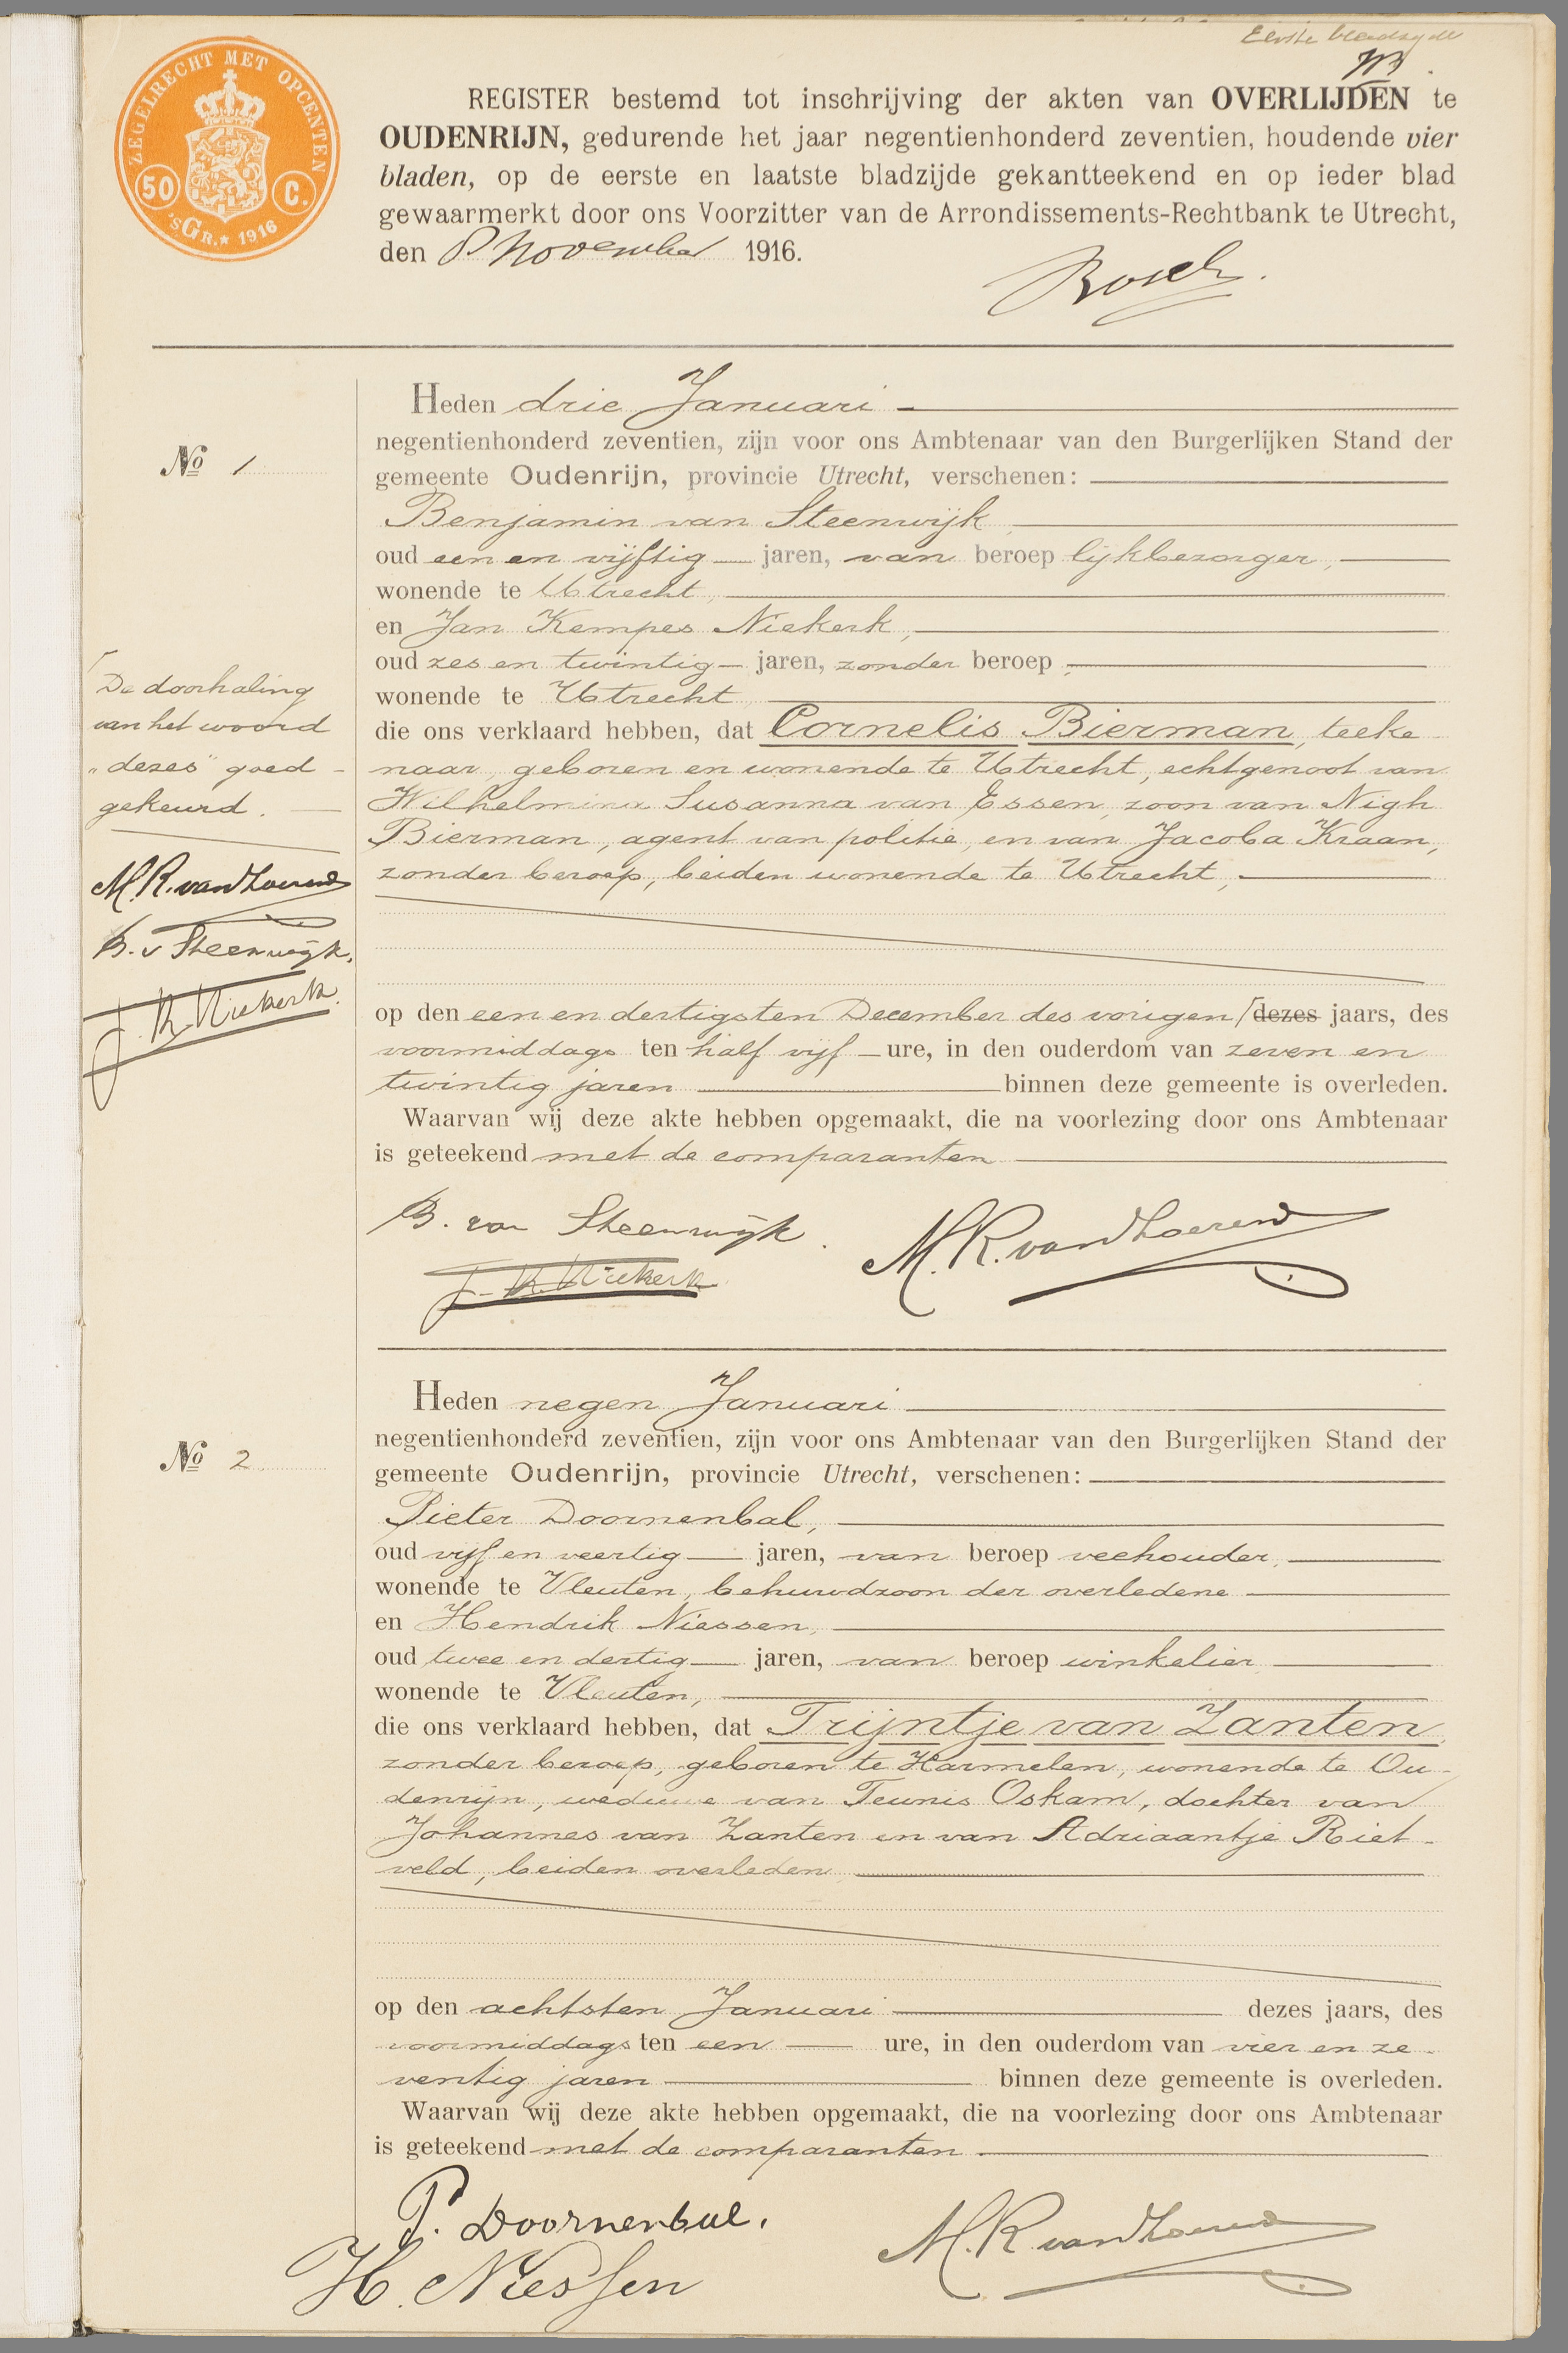 Eerste bladzijde
ZEGELRECHT MET OPCENTEN
50 C.
'SGR.★ 1916
REGISTER bestemd tot inschrijving der akten van OVERLIJDEN te
OUDENRIJN, gedurende het jaar negentienhonderd zeventien, houdende vier
bladen, op de eerste en laatste bladzijde gekantteekend en op ieder blad
gewaarmerkt door ons Voorzitter van de Arrondissements-Rechtbank te Utrecht,
den 8 November 1916.
Bosch.
No 1
Heden drie Januari
negentienhonderd zeventien, zijn voor ons Ambtenaar van den Burgerlijken Stand der
gemeente Oudenrijn, provincie Utrecht, verschenen:
Benjamin van Steenwijk,
oud een en vijftig jaren, van beroep lijkbezorger,
wonende te Utrecht,
en Jan Kempes Niekerk,
oud zes en twintig jaren, zonder beroep,
wonende te Utrecht
die ons verklaard hebben, dat Cornelis Bierman, teeke-
naar, geboren en wonende te Utrecht, echtgenoot van
Wilhelmina Susanna van Essen, zoon van Nigh
Bierman, agent van politie, en van Jacoba Kraan,
zonder beroep, beiden wonende te Utrecht,
op den een en dertigsten December des vorigen dezes jaars, des
voormiddags ten half vijf ure, in den ouderdom van zeven en
twintig jaren binnen deze gemeente is overleden.
Waarvan wij deze akte hebben opgemaakt, die na voorlezing door ons Ambtenaar
is geteekend met de comparanten
B. van Steenwijk.
J. K. Niekerk
De doorhaling
van het woord
„dezes" goed-
gekeurd.
B. v Steenwijk.
J. K. Niekerk.
No 2
Heden negen Januari
negentienhonderd zeventien, zijn voor ons Ambtenaar van den Burgerlijken Stand der
gemeente Oudenrijn, provincie Utrecht, verschenen:
Pieter Doornenbal,
oud vijf en veertig jaren, van beroep veehouder,
wonende te Vleuten, behuwdzoon der overledene
en Hendrik Niessen,
oud twee en dertig jaren, van beroep winkelier
wonende te Vleuten,
die ons verklaard hebben, dat Trijntje van Zanten,
zonder beroep, geboren te Harmelen, wonende te Ou-
denrijn, weduwe van Teunis Oskam, dochter van
Johannes van Zanten en van Adriaantje Riet-
veld, beiden overleden
op den achtsten Januari dezes jaars, des
voormiddags ten een ure, in den ouderdom van vier en ze-
ventig jaren binnen deze gemeente is overleden.
Waarvan wij deze akte hebben opgemaakt, die na voorlezing door ons Ambtenaar
is geteekend met de comparanten
P. Doornenbal.
H. Niessen